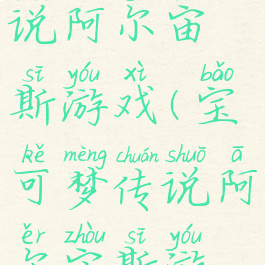 说阿尔宙
sī yóu xì bǎo
斯游戏(宝
kě mèng chuán shuō ā
可梦传说阿
ěr zhòu sī yóu
尔宙斯游